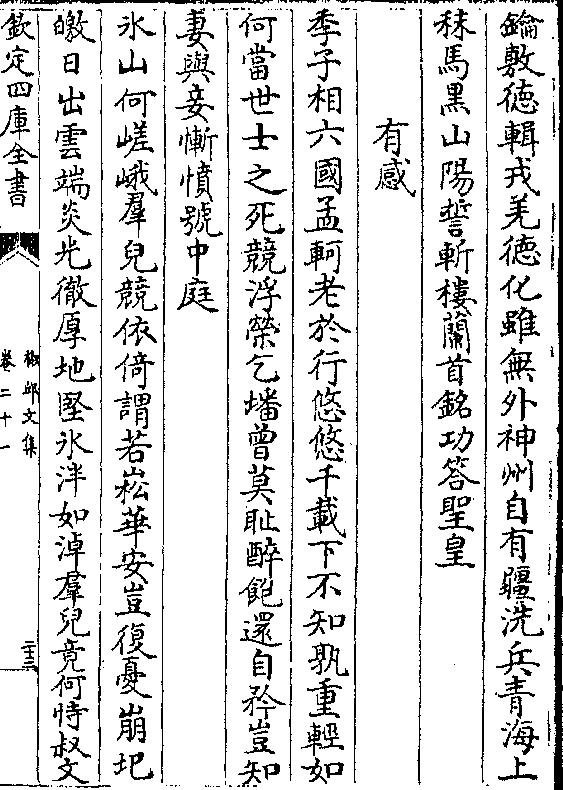 鑰敷德輯戎羌德化雖無外神州自有疆洗兵青海上
秣馬黒山陽誓斬樓蘭首銘功答聖皇
有感
季子相六國孟軻老於行悠悠千載下不知孰重輕如
何當世士之死競浮榮乞墦曾莫恥醉飽還自矜豈知
妻與妾慚憤號中庭
氷山何嵯峨羣兒競依倚謂若崧華安豈復憂崩圮
皦日出雲端炎光徹厚地堅氷泮如淖羣兒竟何恃叔文
欽定四庫全書
椒邱文集
卷二十一
二十三